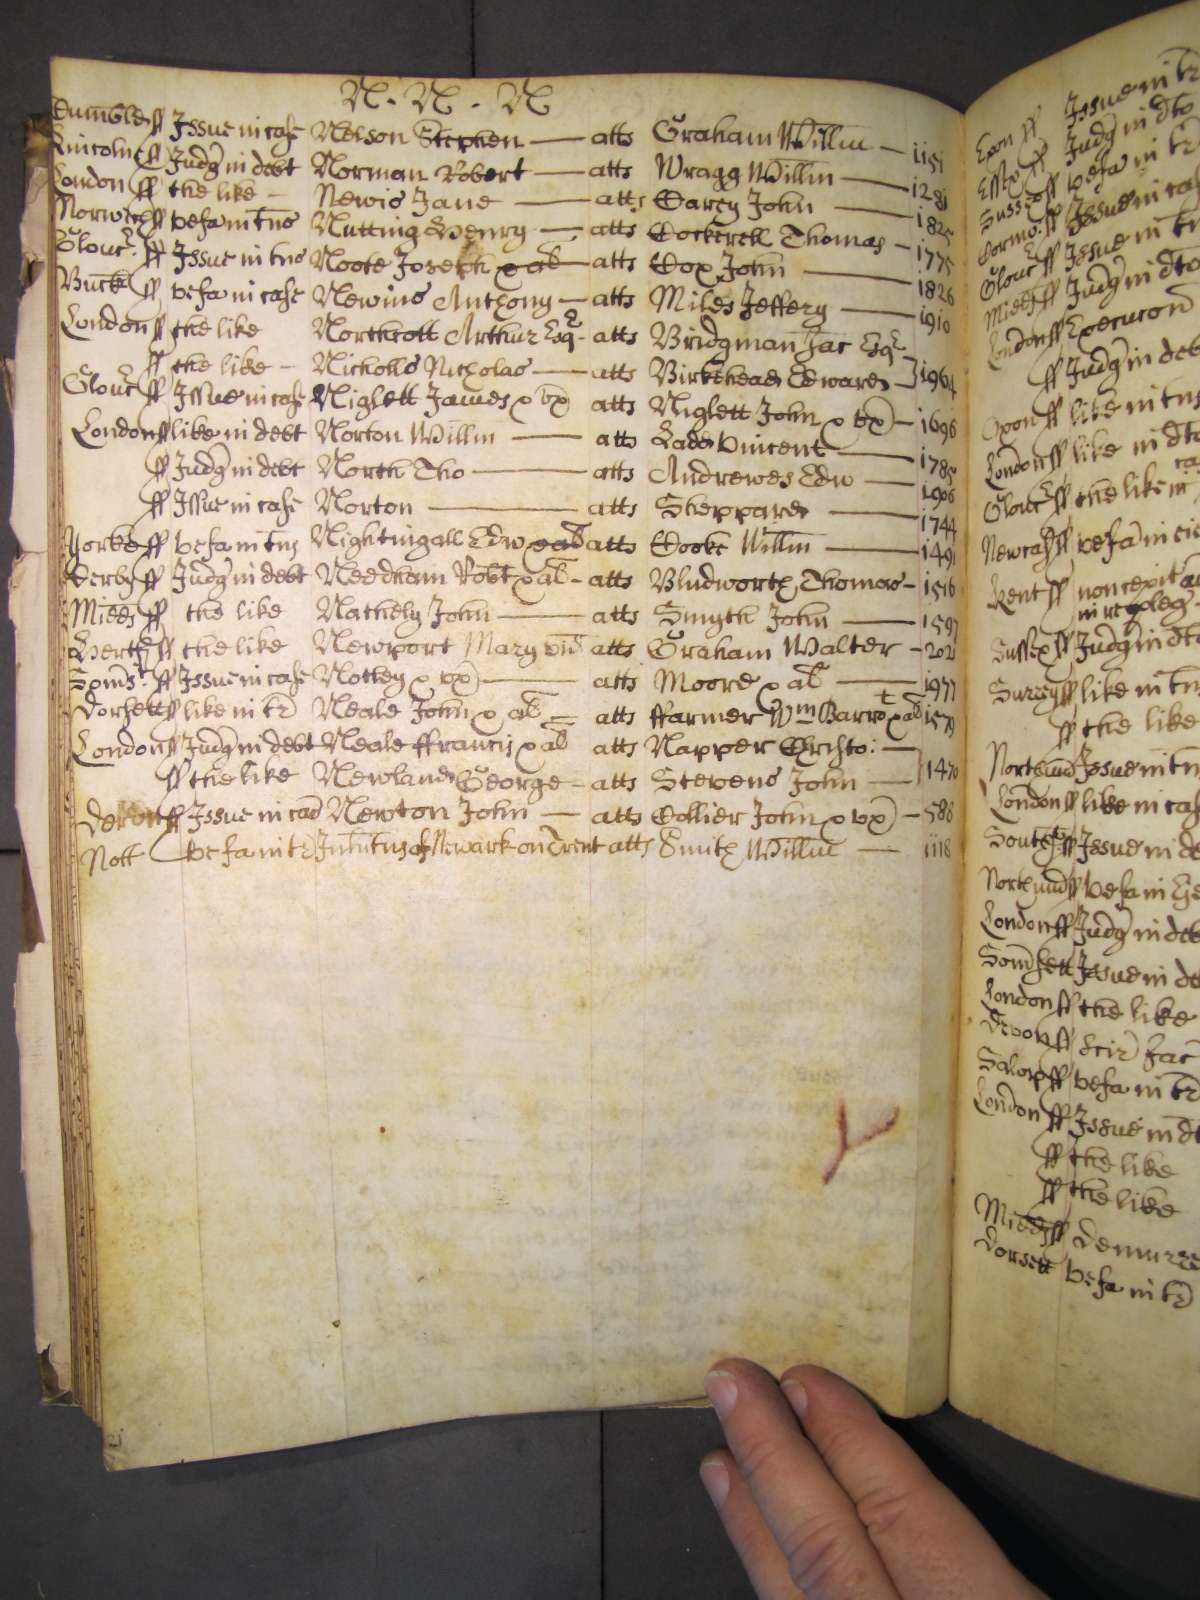 N. N. N
Issue in case Nelson Stephen — atts Graham Willm — 1151
Lincolne ss Judgt in debt Norman Robert — atts Wragg Willm — 1281
London ss the like — Newis Jane — atts Darcy John — 1825
Norwich ss ve fa in tns Nutting Henry — atts Cockerell Thomas — 1775
Glouc ss Issue in tns Noote Joseph atts Cox John — 1826
Buck ss ve fa in case Newins Anthony — atts Miles Jeffery — 1910
London ss the like Northcott Arthur Esqr - atts Bridgman Jac Esqr
ss the like — Nicholls Nicholas — atts Birkhead Edward — 1964
Glouc ss Issue in case Niglett James & ux atts Niglett John & ux — 1696
London ss like in debt Norton Willm — atts Ladd Vincent — 1785
ss Judgt in debt North Tho — atts Andrewes Edw — 1906
ss Issue in case Norton — atts Sheppard — 1744
Yorke ss ve fa in tns Nightingall Edw & al atts Cooke Willm — 1491
Derby ss Judgt in debt Needham Robt & al - atts Bludworth Thomas - 1516
Midds ss the like Nathely John — atts Smyth John — 1597
Hertf ss the like Newport Mary vid atts Graham Walter - 202
ss Issue in case Nottley & ux — atts Moore & al — 1977
Dorsett ss like in tr Neale John & al — atts ffarmer Wm Barrot & al 1579
London ss Judgt in debt Neale ffrancis & al atts Napper Christo: —
ss the like Newland George - atts Stevens John — 1470
Devon ss Issue in Newton John — atts Collier John & ux — 588
Nott ve fa in tr of Newark on Trent atts Smith Willm — 1118
Exon ss Issue in tr
Essex ss Judgt in dto
Sussex ss ve fa in tr
ss Issue in cas
Glouc ss Issue in tr
Midds ss Judgt in dto
London ss Execucon
ss Judgt in deb
Oxon ss like in tns
London ss like in dto
Glouc ss the like in ca
Newcast ss ve fa in
Kent ss non cepit
in replegr
Sussex ss Judgt in dto
Surrey ss like in tn
ss the like
ss Issue in tn
London ss like in cas
Southt ss Issue in de
ss ve fa in
London ss Judgt in deb
Somsett Issue in de
London ss the like
Devon ss Scir fac
Salop ss ve fa in tr
London ss Issue in dt
ss the like
ss the like
Midds ss demurre
Dorsett ve fa in tr